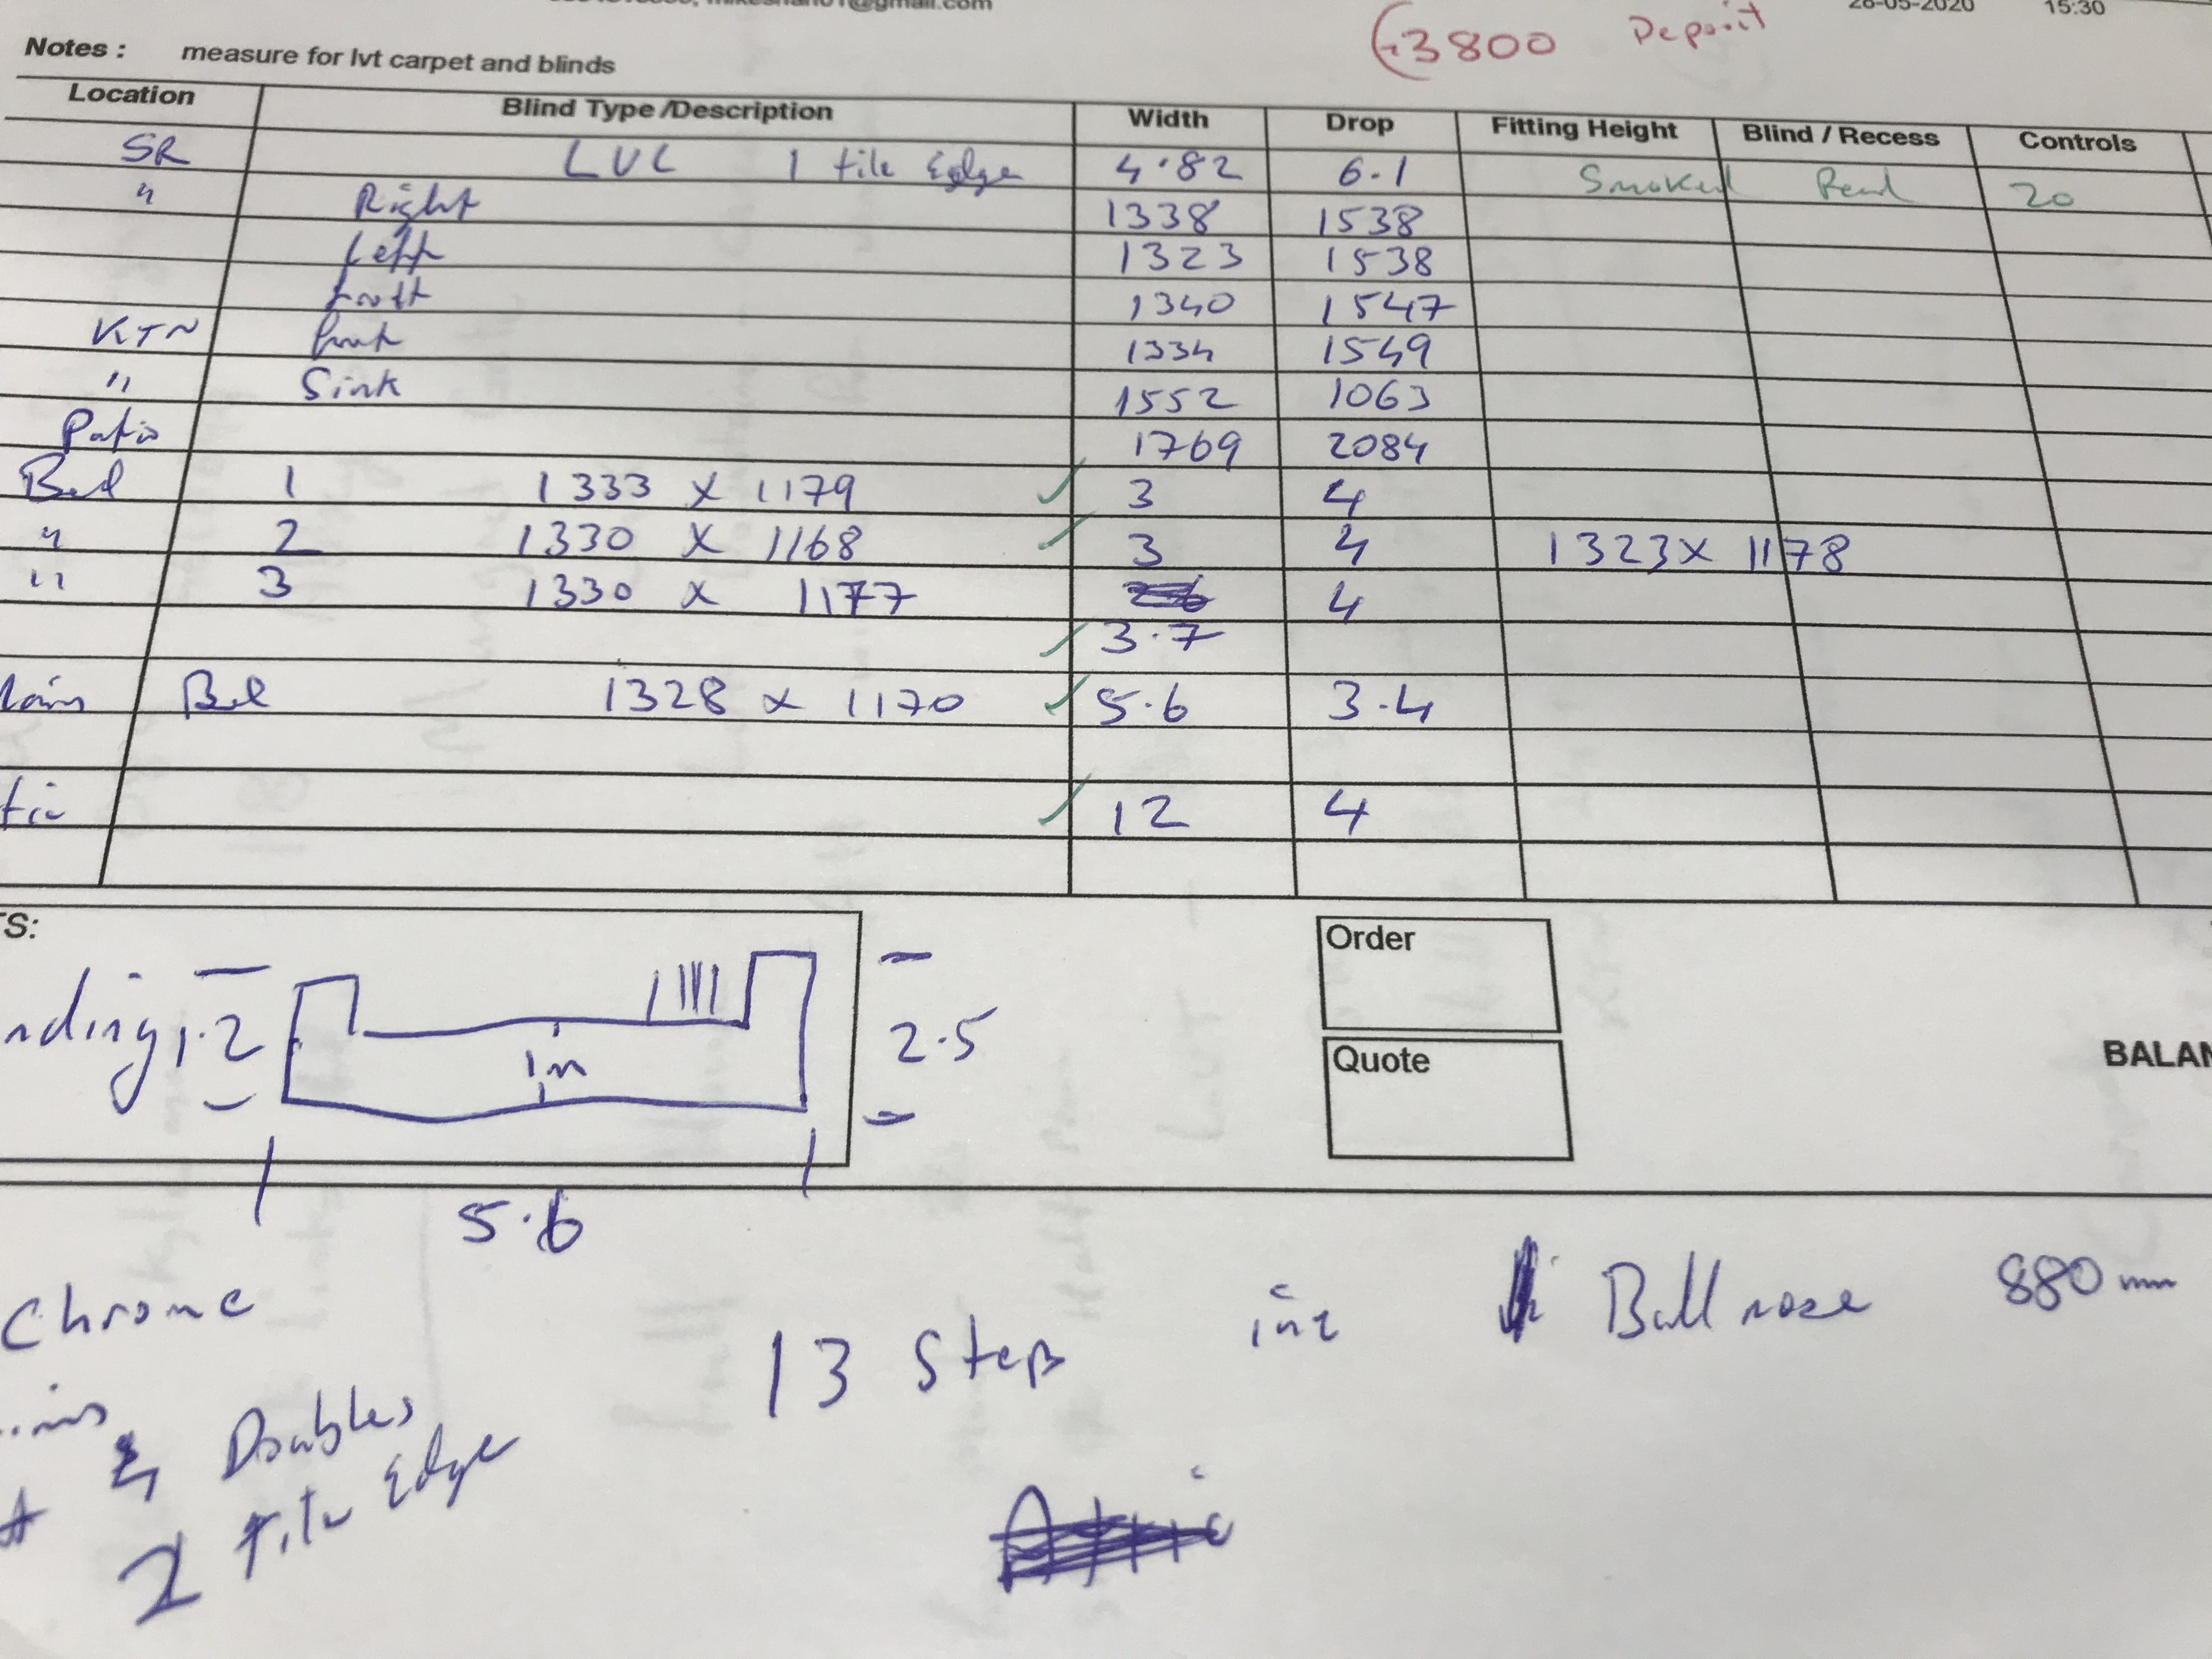 28-05-2020 15:30
3800 Deposit
Notes : measure for lvt carpet and blinds
Location Blind Type /Description Width Drop Fitting Height Blind / Recess Controls
SR LVL 1 tile Edge 4.82 6.1 Smoked Pearl 20
" Right 1338 1538
Left 1323 1538
1340 1547
KTN front 1334 1549
" Sink 1552 1063
Patio 1769 2084
Bed 1 1333 x 1179 ✓ 3 4
" 2 1330 x 1168 ✓ 3 4 1323 x 1178
" 3 1330 x 1177 4
✓ 3.7
Bed 1328 x 1170 ✓ 5.6 3.4
✓ 12 4
TS:
nding 1.2 1m 2.5
Order
Quote
BALAN
5.6
Chrome 13 Steps inc Bullnose 880mm
4 Doubles
2 Tile Edge